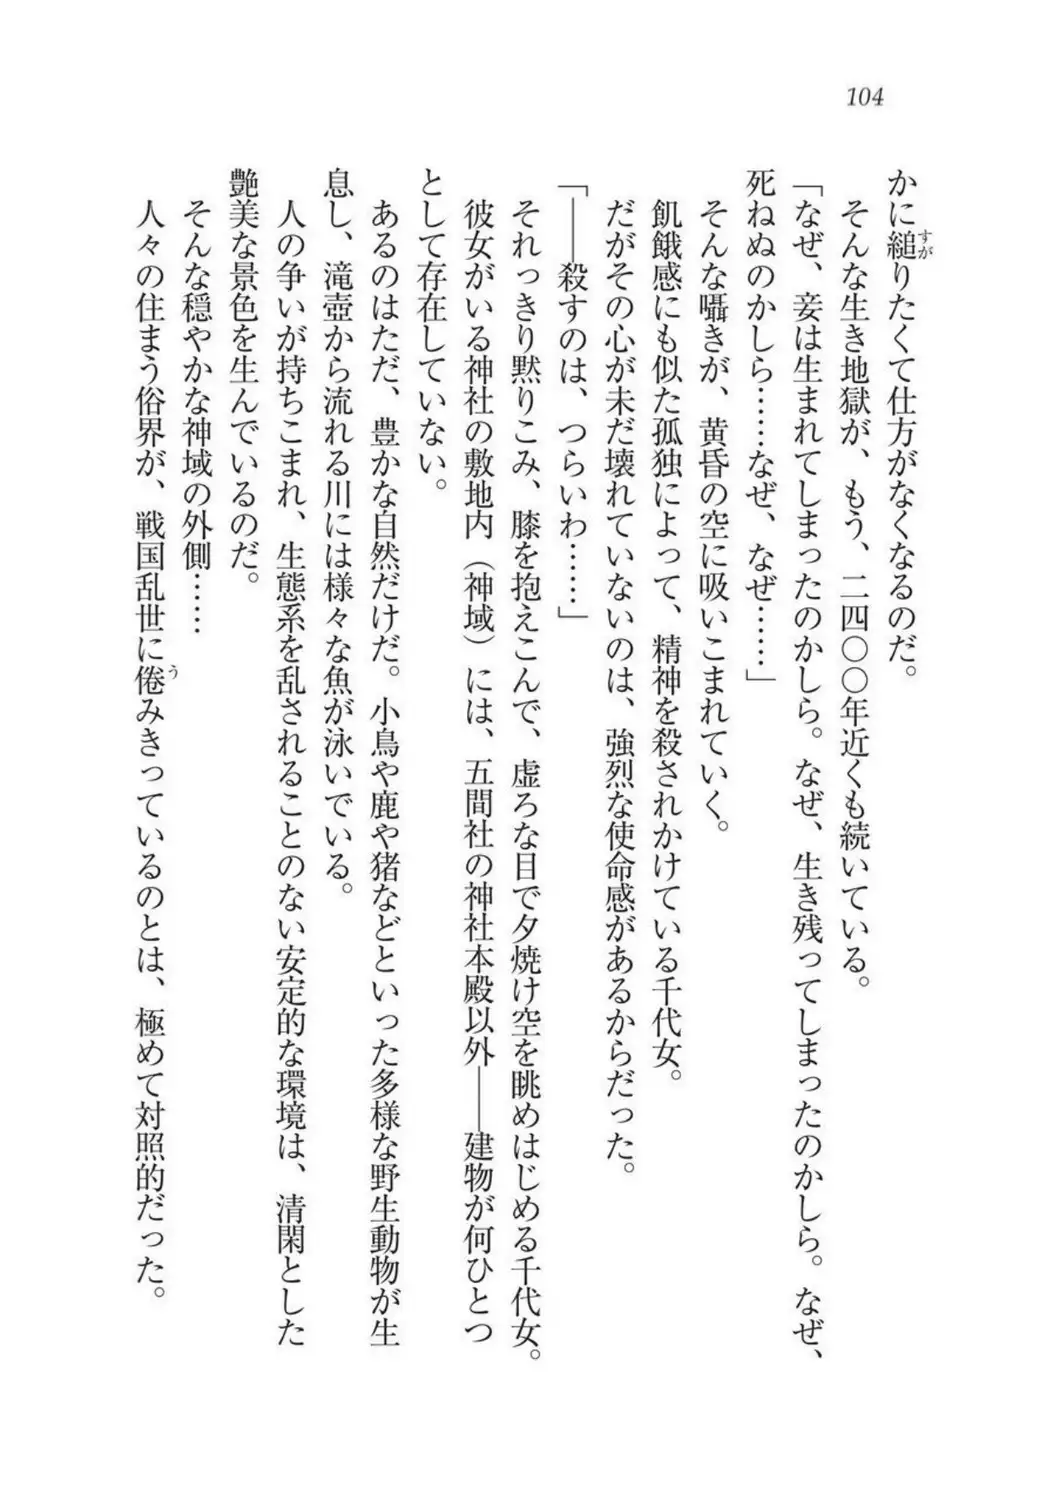 104
かに縋りたくて仕方がなくなるのだ。
すが
そんな生き地獄が、もう、二四〇〇年近くも続いている。
「なぜ、妾は生まれてしまったのかしら。なぜ、生き残ってしまったのかしら。なぜ、
死ねぬのかしら……なぜ、なぜ……」
そんな囁きが、黄昏の空に吸いこまれていく。
飢餓感にも似た孤独によって、精神を殺されかけている千代女。
だがその心が未だ壊れていないのは、強烈な使命感があるからだった。
「――殺すのは、つらいわ……」
それっきり黙りこみ、膝を抱えこんで、虚ろな目で夕焼け空を眺めはじめる千代女。
彼女がいる神社の敷地内（神域）には、五間社の神社本殿以外――建物が何ひとつ
として存在していない。
あるのはただ、豊かな自然だけだ。小鳥や鹿や猪などといった多様な野生動物が生
息し、滝壺から流れる川には様々な魚が泳いでいる。
人の争いが持ちこまれ、生態系を乱されることのない安定的な環境は、清閑とした
艶美な景色を生んでいるのだ。
そんな穏やかな神域の外側……
人々の住まう俗界が、戦国乱世に倦みきっているのとは、極めて対照的だった。
う